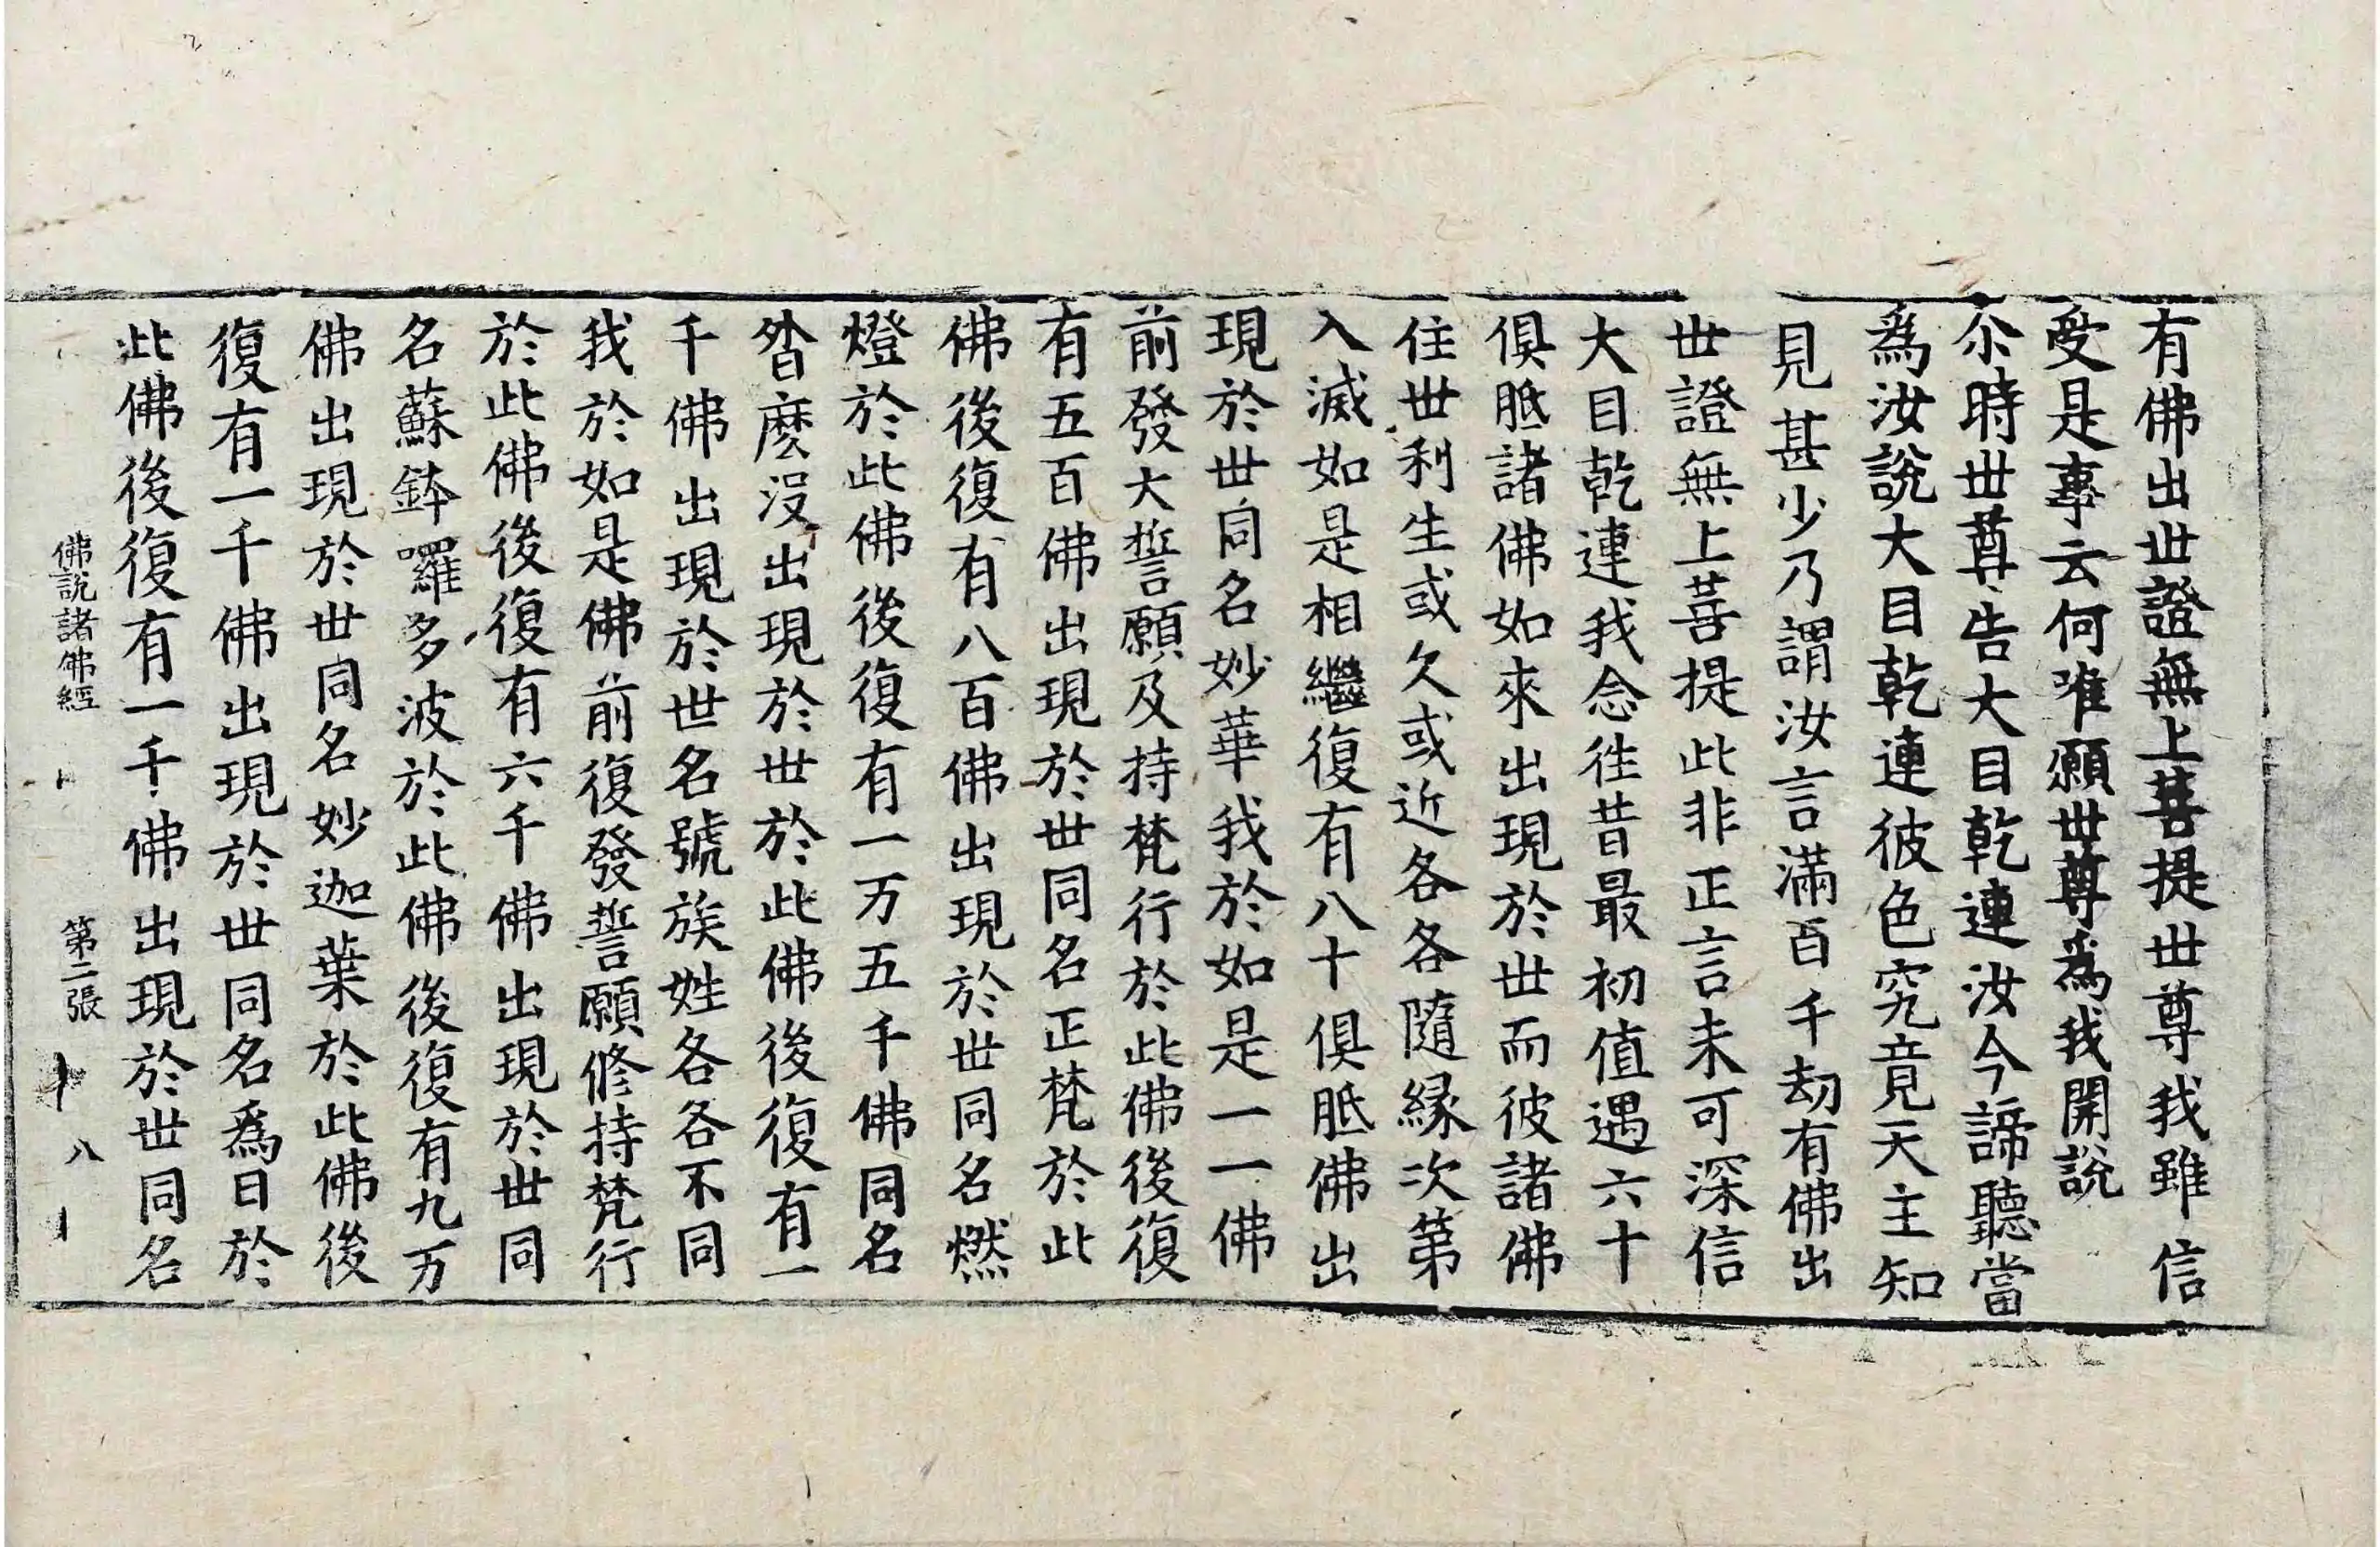 有佛出世證無上菩提世尊我雖信
受是事云何唯願世尊爲我開說
尒時世尊告大目乾連汝今諦聽當
爲汝說大目乾連彼色究竟天主知
見甚少乃謂汝言滿百千劫有佛出
世證無上菩提此非正言未可深信
大目乾連我念徃昔最初值遇六十
俱胝諸佛如來出現於世而彼諸佛
住世利生或久或近各各隨緣次第
入滅如是相繼復有八十俱胝佛出
現於世同名妙華我於如是一一佛
前發大誓願及持梵行於此佛後復
有五百佛出現於世同名正梵於此
佛後復有八百佛出現於世同名燃
燈於此佛後復有一万五千佛同名
沓麼沒出現於世於此佛後復有一
千佛出現於世名號族姓各各不同
我於如是佛前復發誓願修持梵行
於此佛後復有六千佛出現於世同
名蘇鉢囉多波於此佛後復有九万
佛出現於世同名妙迦葉於此佛後
復有一千佛出現於世同名爲日於
此佛後復有一千佛出現於世同名
佛說諸佛經 第二張 八